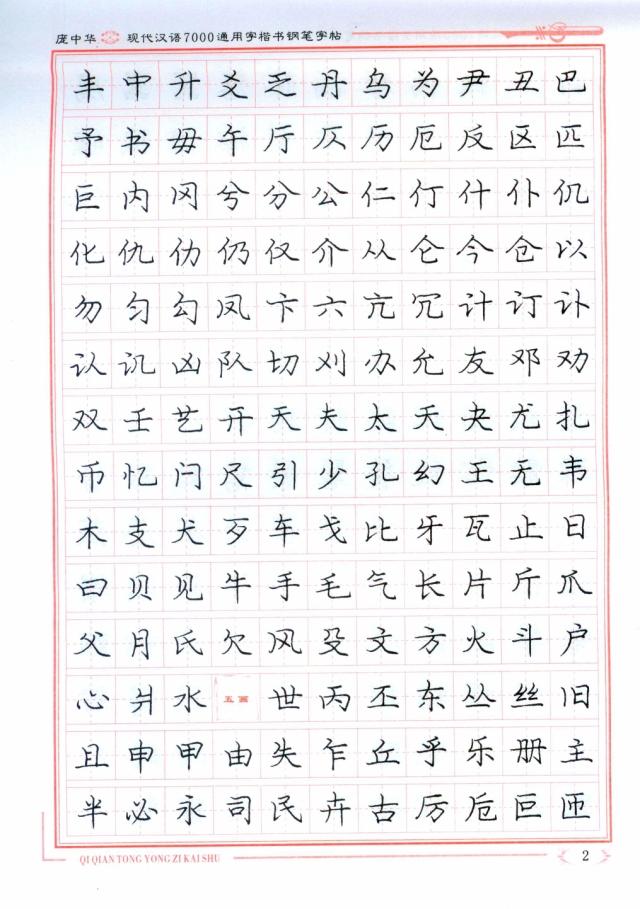 庞中华 现代汉语7000通用字楷书钢笔字帖
丰中升爻乏丹乌为尹丑巴
予书毋午厅仄历厄反区匹
巨内冈兮分公仁仃什仆仉
化仇仂仍仅介从仑今仓以
勿匀勾凤卞六亢冗计订讣
认讥凶队切刈办允友邓劝
双壬艺开天夫太夭夬尤扎
币忆闩尺引少孔幻王无韦
木支犬歹车戈比牙瓦止日
曰贝见牛手毛气长片斤爪
父月氏欠风殳文方火斗户
心爿水五画世丙丕东丛丝旧
且申甲由失乍丘乎乐册主
半必永司民卉古厉卮叵匝
QI QIAN TONG YONG ZI KAI SHU 2